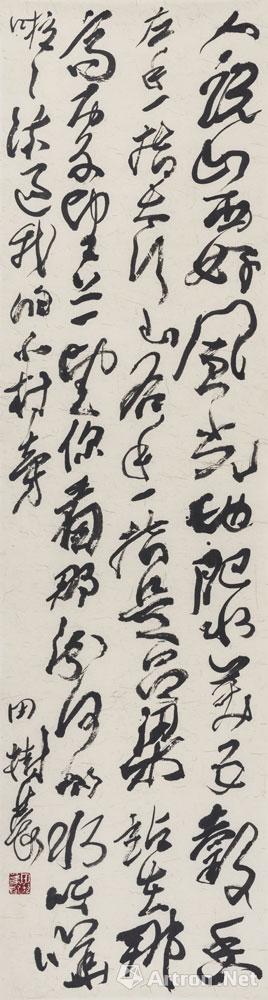 人說山西好風光地肥水美五穀香
左手一指太行山右手一指是呂梁站在那
高處望上一望你看那汾河的水呀嘩
啦々流過我的小村旁
田樹萇
Artron.Net